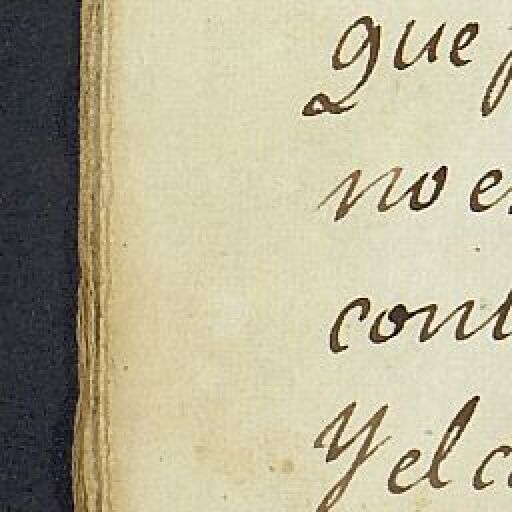 que
no e
cont
Y el c